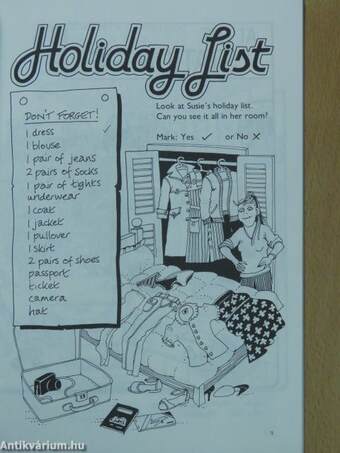 Holiday List
Look at Susie's holiday list.
Can you see it all in her room?
Mark: Yes ✓ or No ✗
DON'T FORGET!
1 dress ✓
1 blouse
1 pair of jeans
2 pairs of socks
1 pair of tights
underwear
1 coat
1 jacket
1 pullover
1 skirt
2 pairs of shoes
passport
ticket
camera
hat
Antikvárium.hu